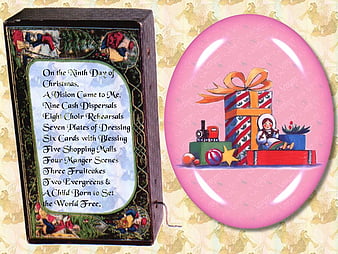 On the Ninth Day of
Christmas,
A Vision Came to Me;
Nine Cash Dispersals
Eight Choir Rehearsals
Seven Plates of Dressing
Six Cards with Blessing
Five Shopping Malls
Four Manger Scenes
Three Fruitcakes
Two Evergreens &
A Child Born to Set
the World Free.